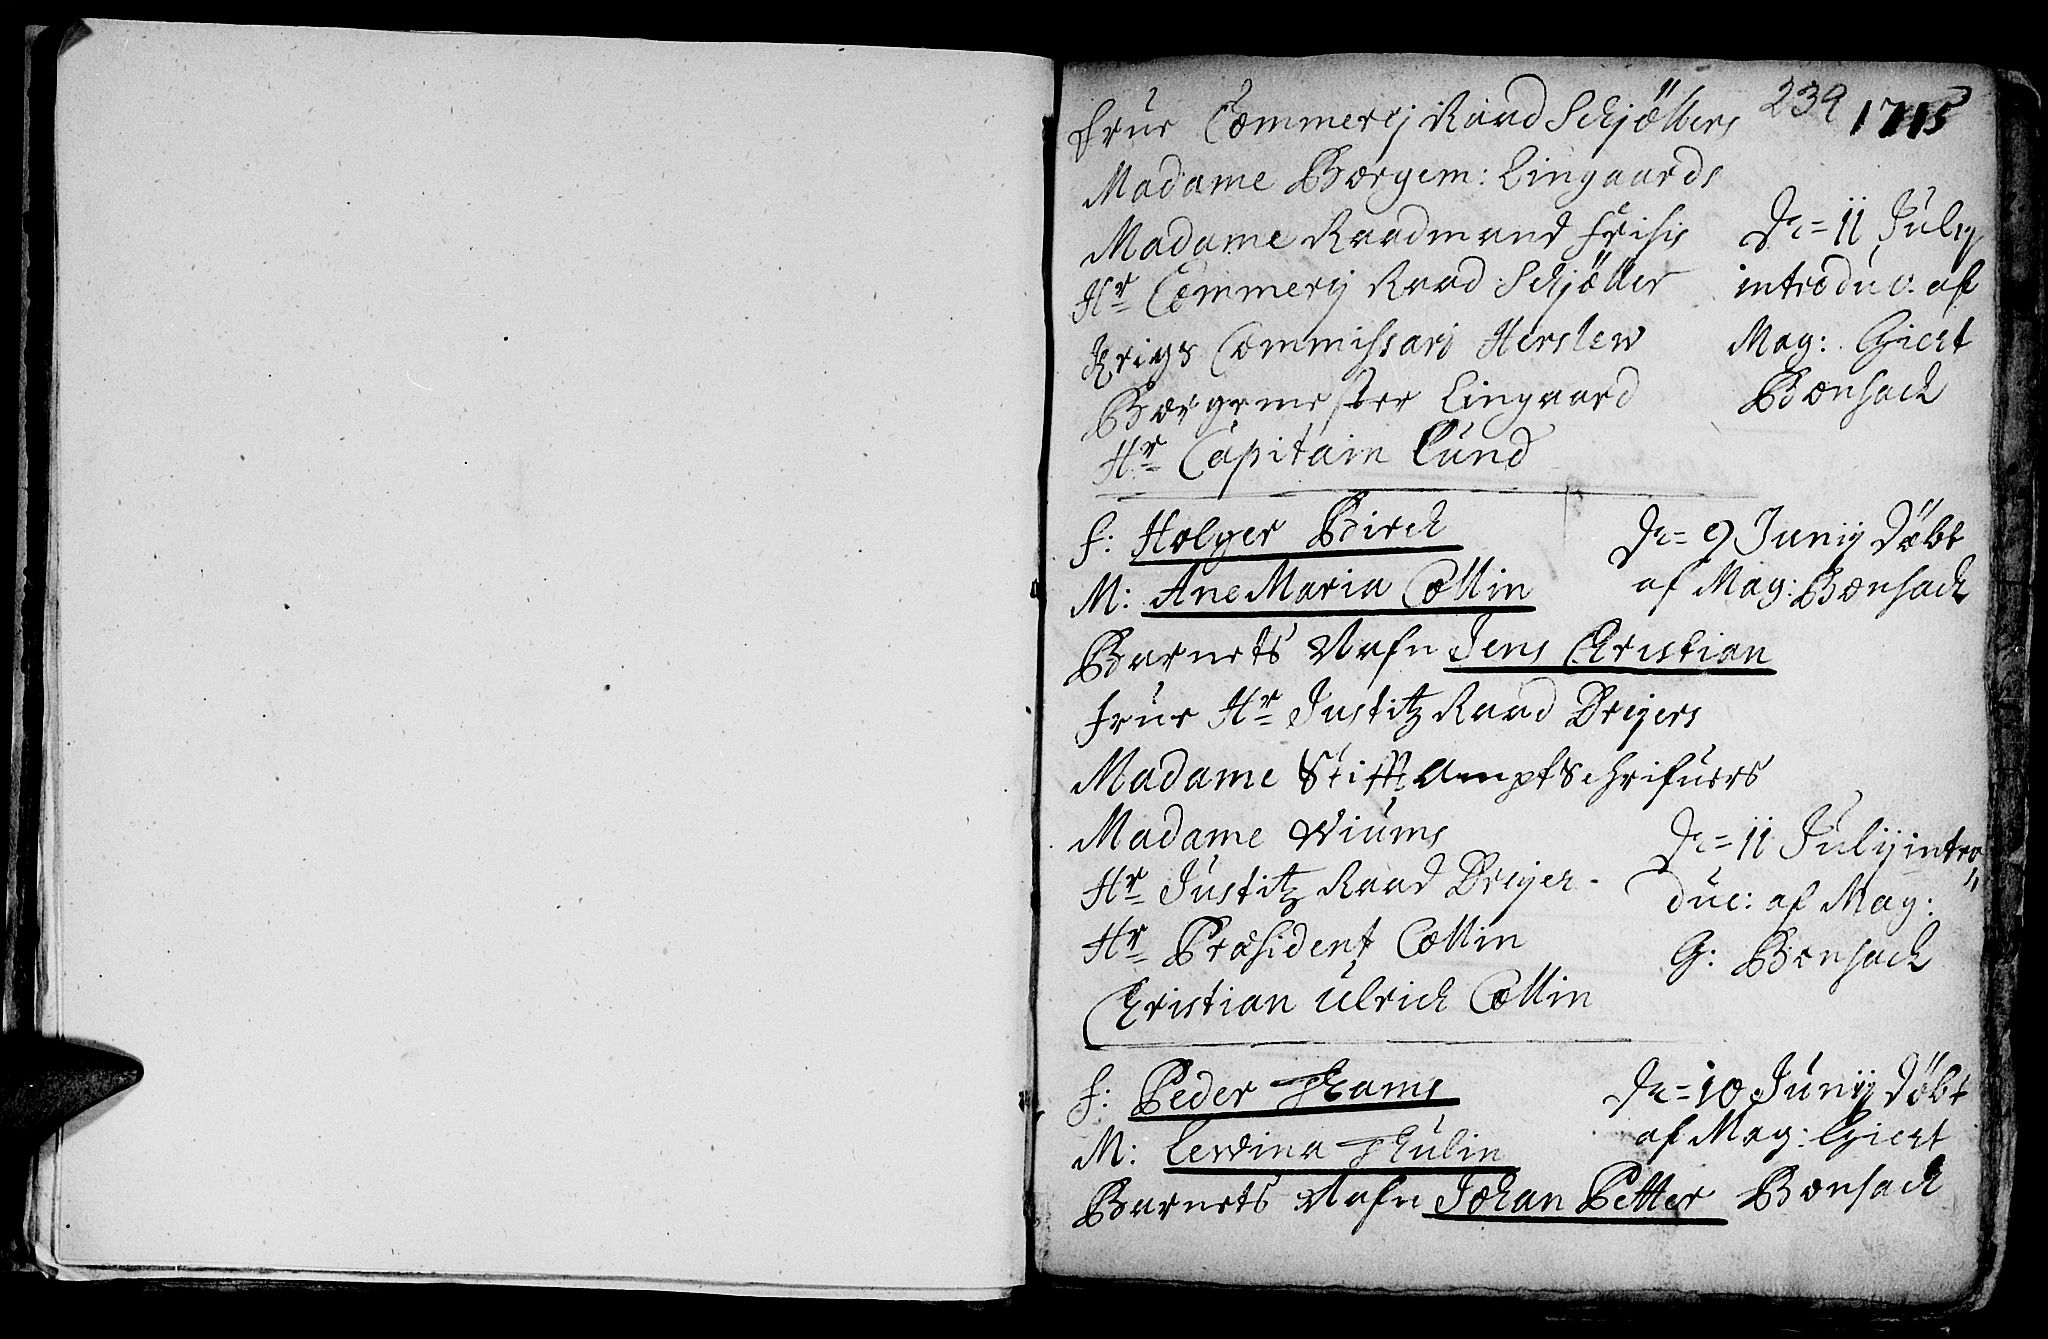 239 1715
Frue Commercij Raad Schjöllers
Madame Borgem: Lingaards
Madame Raadmand Frisis
Hr Commercij Raad Schjöller
Krigs Commissari Herslew
Borgemester Lingaard
Hr Capitain Lund
Dn = 11 Julij
introduc: af
Mag: Giert
Bonsach
F: Holger Birch
M: Ane Maria Collin
Barnets Nafn Jens Christian
Dn = 9 Junij Döbt
af Mag: Bonsach
Frue Hr Justitz Raad Dreyers
Madame Stifft Ampt Schrifuers
Madame Wiums
Hr Justitz Raad Dreyer
Hr Præsident Collin
Christian Ulrich Collin
Dn = 11 Julij intro
duc: af Mag:
G: Bonsach
F: Peder Thams
M: Lewina Thulin
Barnets Nafn Johan Petter
Dn = 10 Junij Döbt
af Mag: Giert
Bonsach